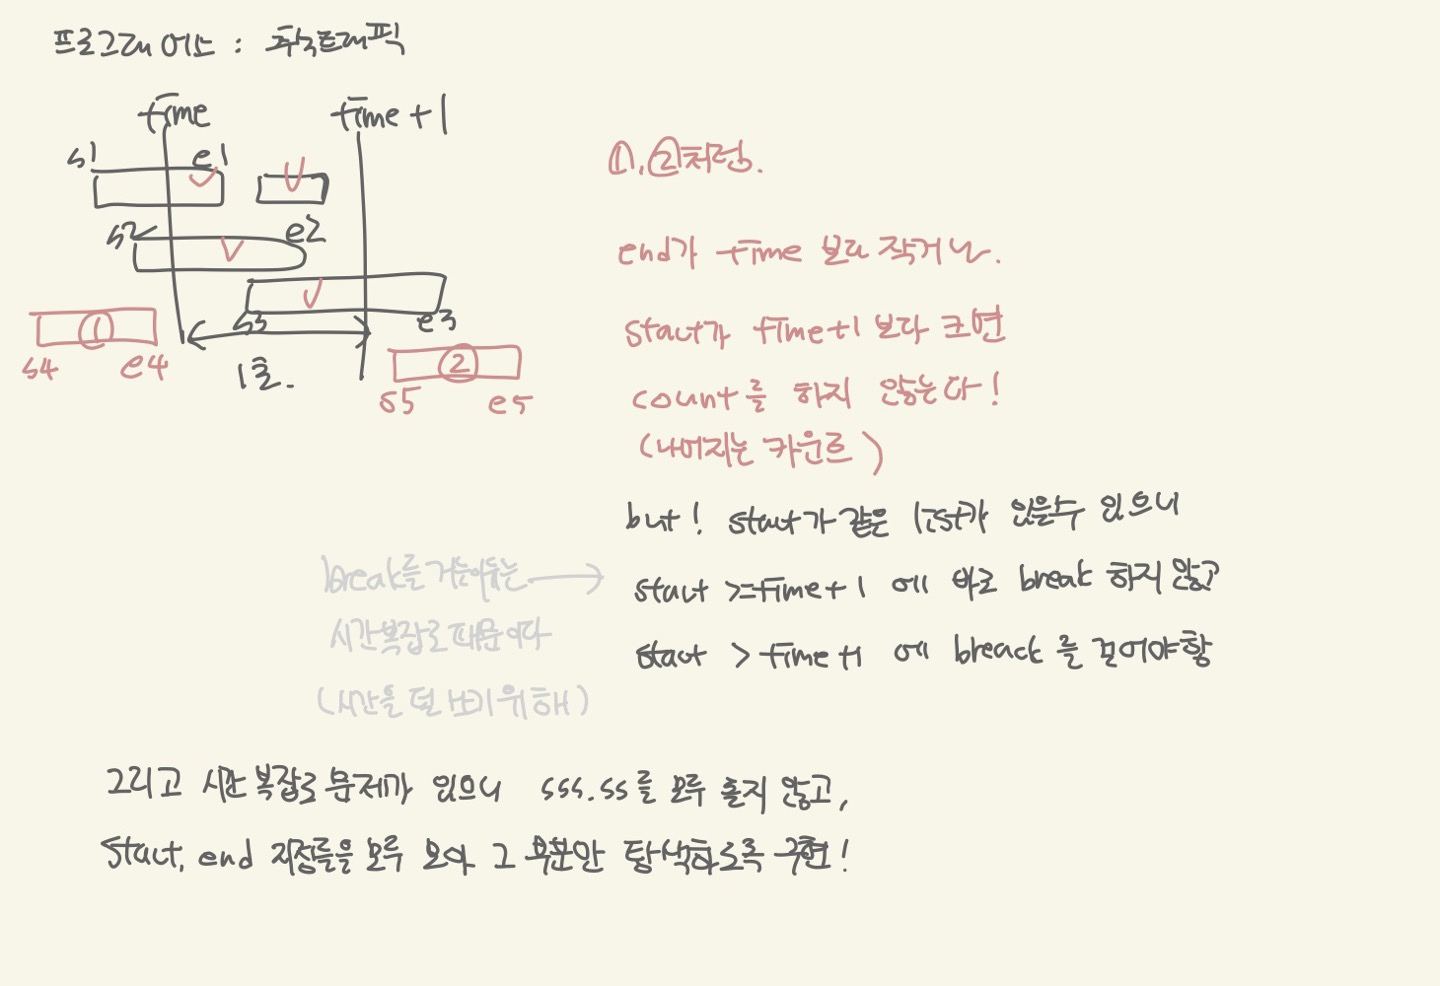 프로그래머스 : 추석트래픽
time
time+1
s1
e1
s2
e2
s3
e3
s4
①
e4
1초.
②
s5
e5
①, ②처럼.
end가 time 보다 작거나.
start가 time+1 보다 크면
count를 하지 않는다!
(나머지는 카운트)
but! start가 같은 list가 있을수 있으니
break를 거는이유는
start >=time+1 에 바로 break 하지 않고
시간복잡도 때문이다
start > time+1 에 break 를 걸어야함
(시간을 덜 쓰기위해)
그리고 시간 복잡도 문제가 있으니 sss.ss를 모두 훑지 않고,
start, end 지점들을 모두 모아 그 부분만 탐색하도록 구현!